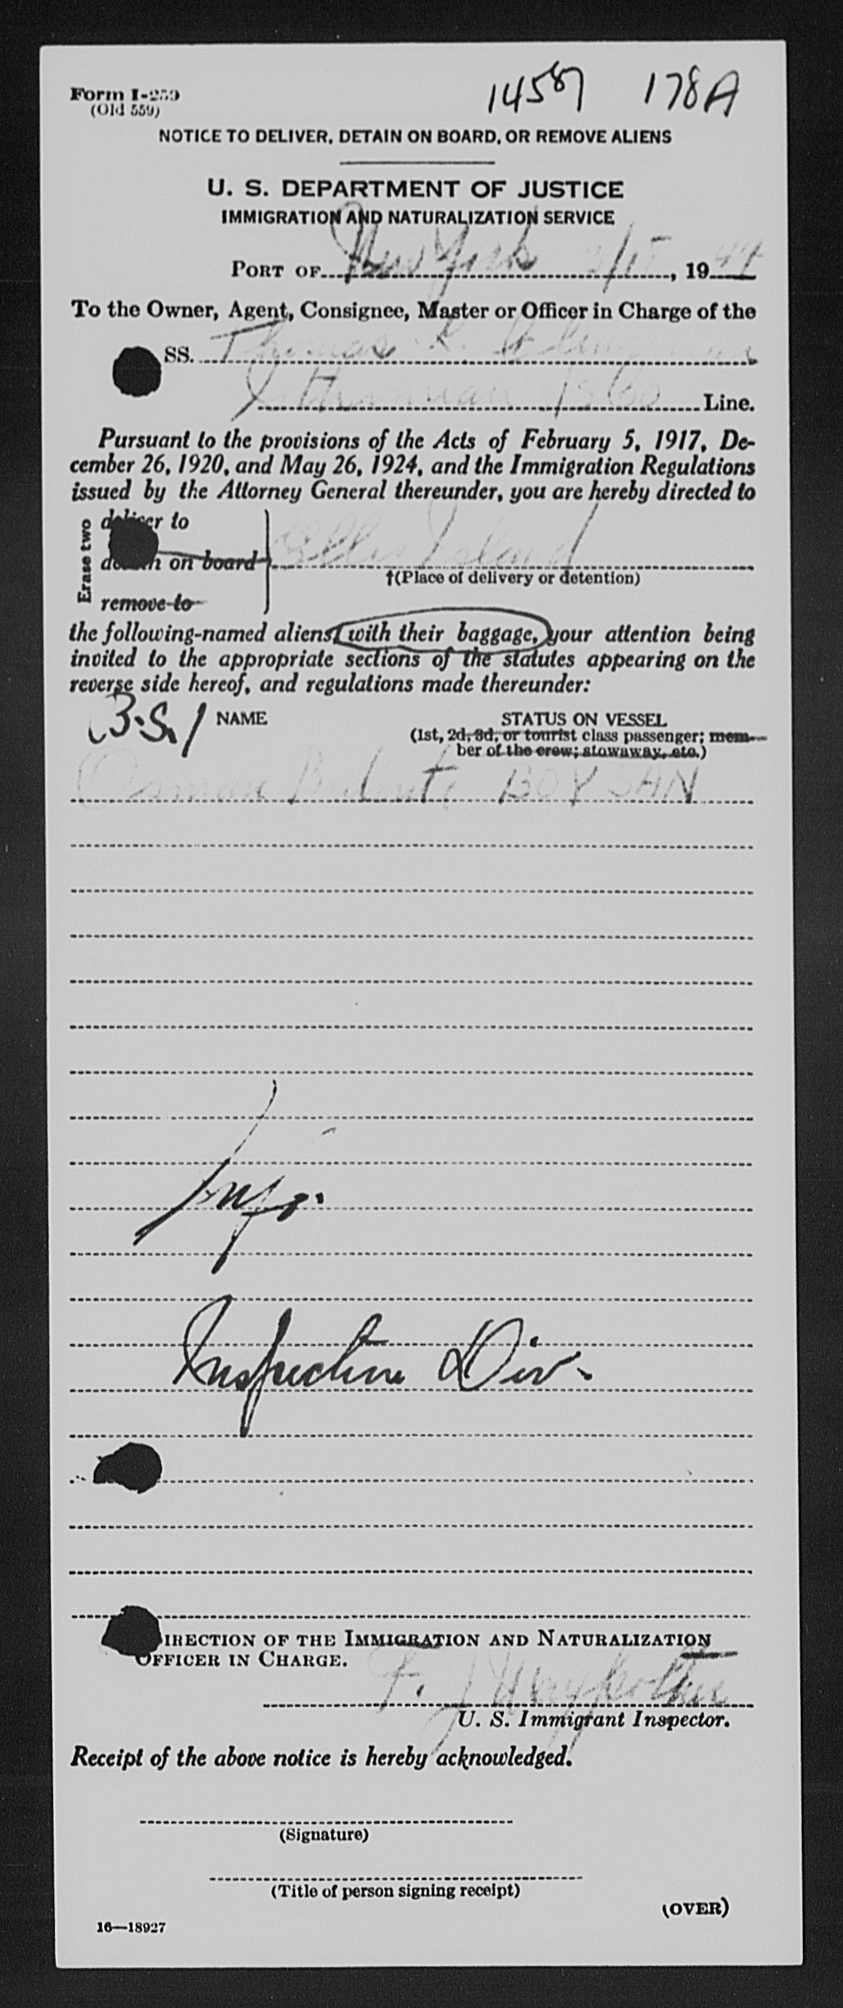 Form I-259
(Old 559)
14587 178A
NOTICE TO DELIVER, DETAIN ON BOARD, OR REMOVE ALIENS
U. S. DEPARTMENT OF JUSTICE
IMMIGRATION AND NATURALIZATION SERVICE
PORT OF New York /15, 1944
To the Owner, Agent, Consignee, Master or Officer in Charge of the
SS. Thomas
Isthmian SS Co Line.
Pursuant to the provisions of the Acts of February 5, 1917, De-
cember 26, 1920, and May 26, 1924, and the Immigration Regulations
issued by the Attorney General thereunder, you are hereby directed to
Erase two
deliver to
detain on board
Ellis Island
†(Place of delivery or detention)
remove to
the following-named aliens, with their baggage, your attention being
invited to the appropriate sections of the statutes appearing on the
reverse side hereof, and regulations made thereunder:
B.S.I NAME STATUS ON VESSEL
(1st, 2d, 3d, or tourist class passenger; mem-
ber of the crew; stowaway, etc.)
Osman BOYJAN
Info.
Inspection Div.
DIRECTION OF THE IMMIGRATION AND NATURALIZATION
OFFICER IN CHARGE.
F. J.
U. S. Immigrant Inspector.
Receipt of the above notice is hereby acknowledged.
(Signature)
(Title of person signing receipt)
(OVER)
16—18927